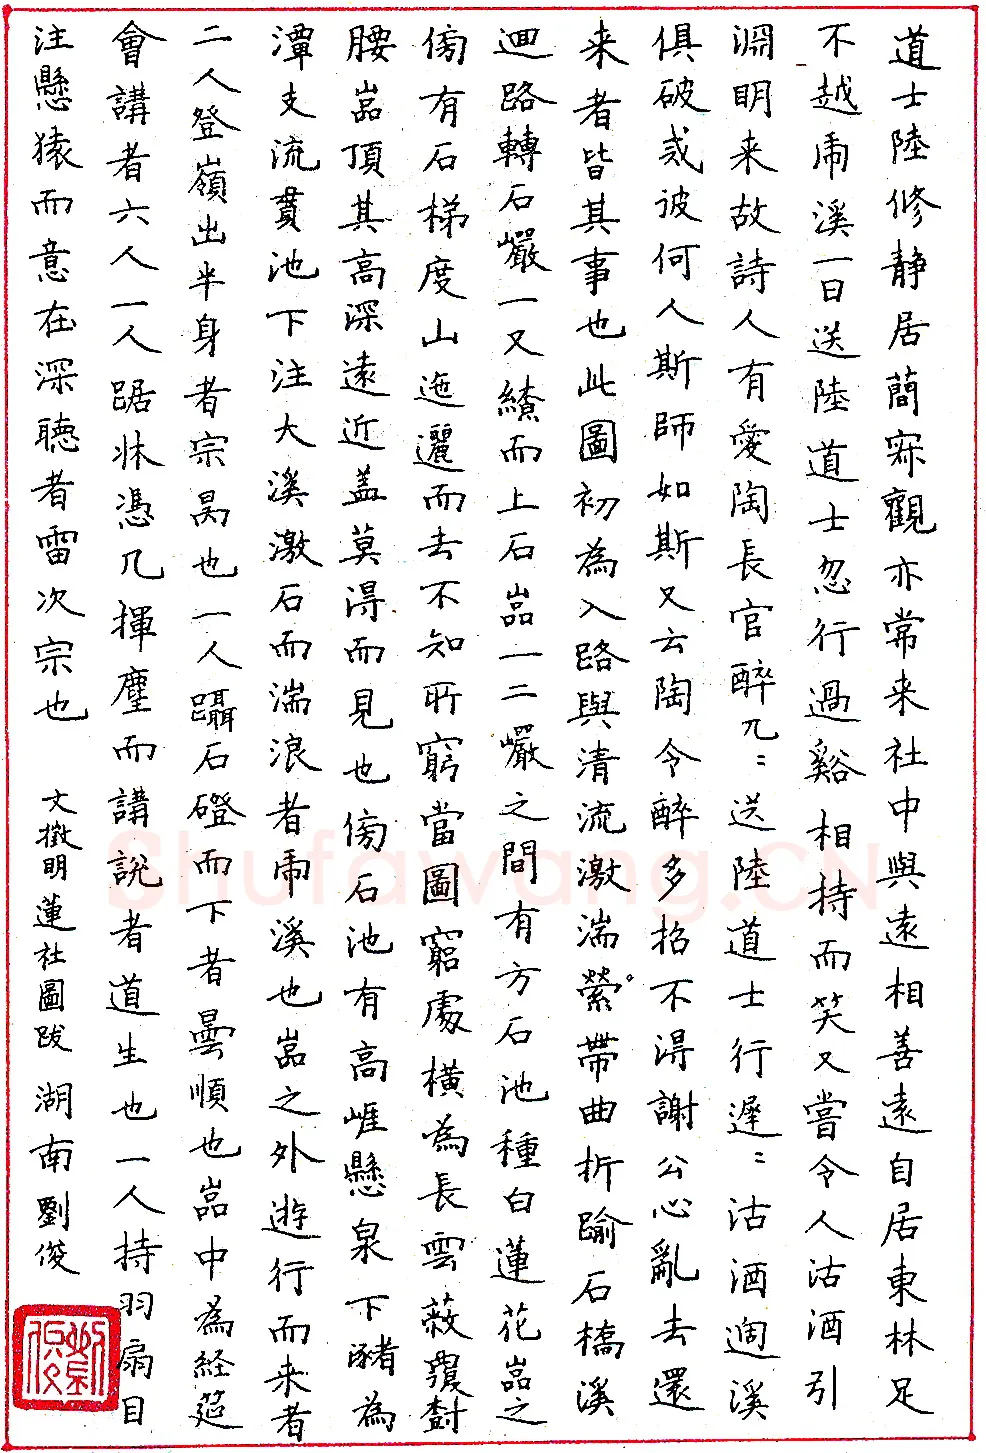 道士陸修静居簡寂觀亦常来社中與遠相善遠自居東林足
不越虎溪一日送陸道士忽行過谿相持而笑又嘗令人沽酒引
淵明来故詩人有愛陶長官醉兀〻送陸道士行遲〻沽酒過溪
俱破戒彼何人斯師如斯又云陶令醉多招不得謝公心亂去還
来者皆其事也此圖初為入路與清流激湍縈帶曲折踰石橋溪
迴路轉石巖一又繚而上石嵓一二巖之間有方石池種白蓮花嵓之
傍有石梯度山迤邐而去不知所窮當圖窮處橫為長雲蔽覆樹
腰嵓頂其高深遠近盖莫得而見也傍石池有高崕懸泉下瀦為
潭支流貫池下注大溪激石而湍浪者虎溪也嵓之外遊行而来者
二人登嶺出半身者宗昺也一人躡石磴而下者曇順也嵓中為経筵
會講者六人一人踞牀憑几揮麈而講說者道生也一人持羽扇目
注懸猿而意在深聽者雷次宗也
文徵明蓮社圖跋 湖南劉俊
Shufawang.CN